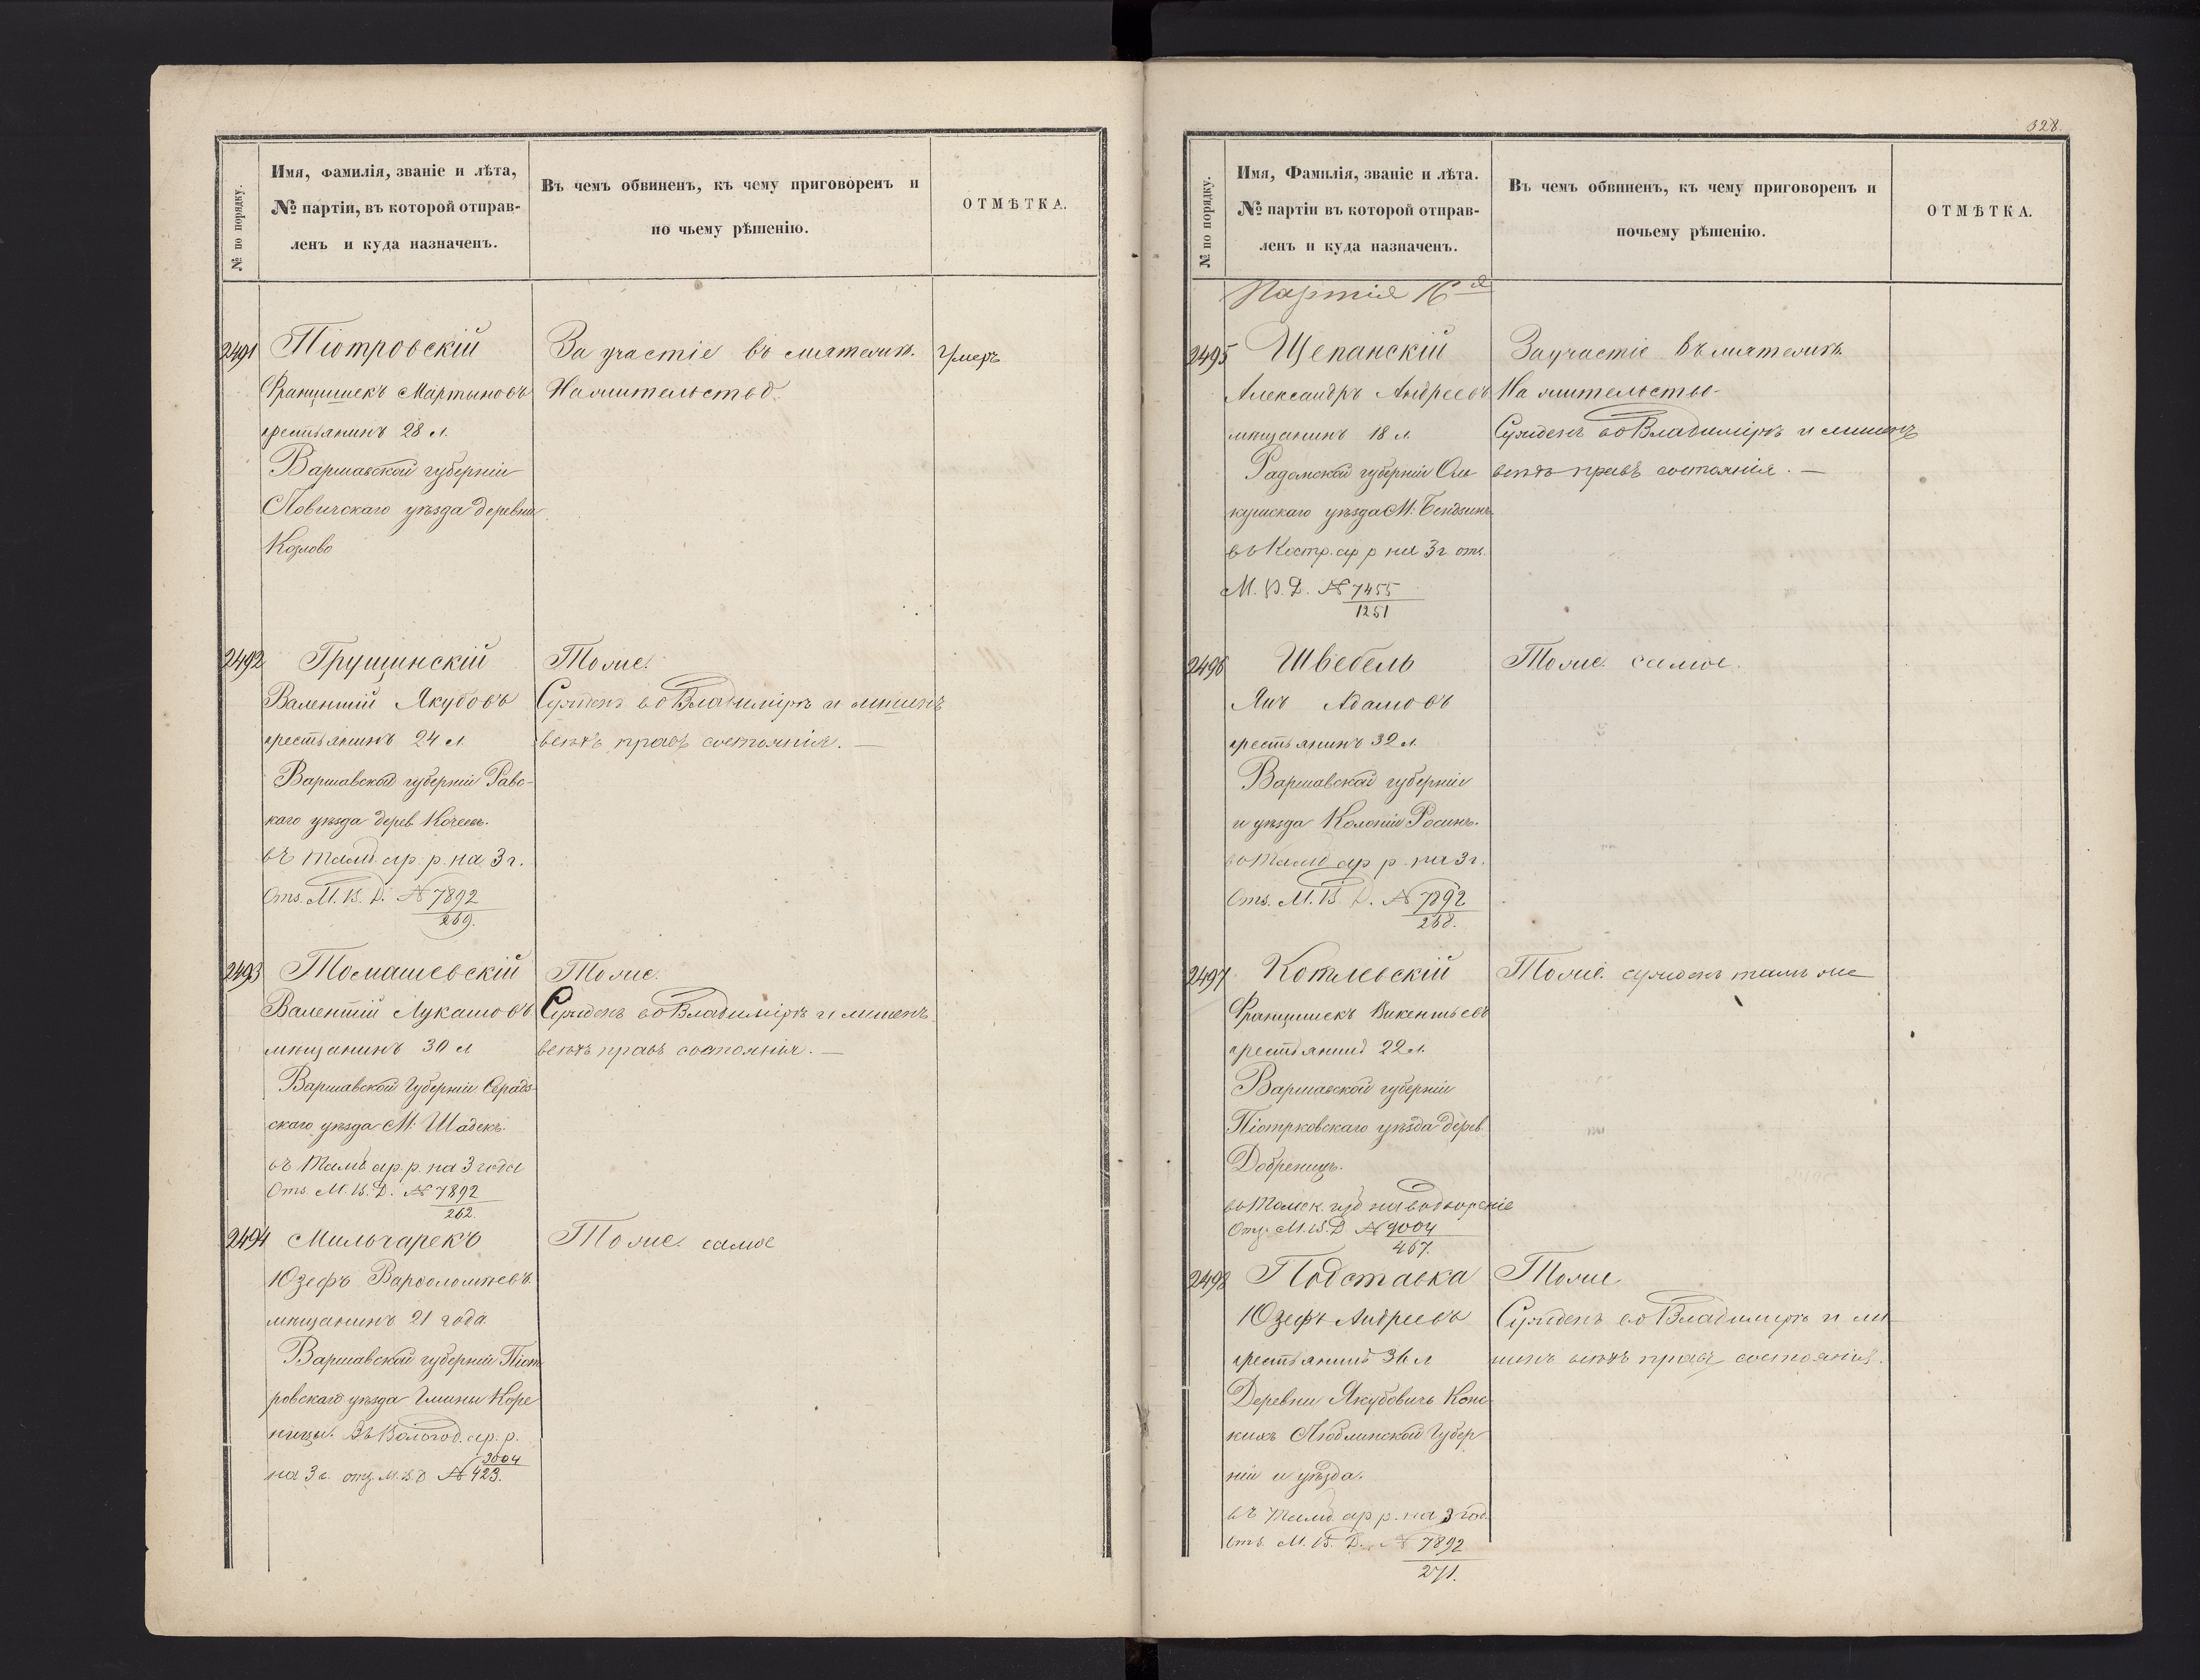 № по порядку.
Имя, фамилія, званіе и лѣта,
№ партіи, въ которой отправ-
ленъ и куда назначенъ.
Въ чемъ обвиненъ, къ чему приговоренъ и
по чьему рѣшенію.
ОТМѢТКА.
2491
Піотровскій
Францишекъ Мартыновъ
крестьянинъ 28 л.
Варшавской губерніи
Ловичскаго уѣзда деревни
Козлово
За участіе въ мятежѣ.
На жительство.
Умеръ
2492
Грущинскій
Валентій Якубовъ
крестьянинъ 24 л.
Варшавской губерніи Равс-
каго уѣзда дерев.
въ Тамб. ар. р. на 3 г.
Отз. М. В. Д. № 7892
269.
Тоже.
Сужденъ во Владимірѣ и лишенъ
всѣхъ правъ состоянія. —
2493
Томашевскій
Валентій Лукашовъ
мѣщанинъ 30 л
Варшавской Губерніи Серадз-
скаго уѣзда М. Шадекъ.
въ Тамб. ар. р. на 3 года
Отз. М. В. Д. № 7892
262.
Тоже.
Сужденъ во Владимірѣ и лишенъ
всѣхъ правъ состоянія. —
2494
Мильчарекъ
Юзефъ Варфоломѣевъ.
мѣщанинъ 21 года
Варшавской губерніи Піот
ровскаго уѣзда Гмины Коре
ницы. Въ Вологод. ар. р.
на 3 г. отз. М. В. Д № 9004
423.
Тоже самое
328.
№ по порядку.
Имя, Фамилія, званіе и лѣта.
№ партіи въ которой отправ-
ленъ и куда назначенъ.
Въ чемъ обвиненъ, къ чему приговоренъ и
почьему рѣшенію.
ОТМѢТКА.
Партія 16я
2495
Щепанскій
Александръ Андреевъ
мѣщанинъ 18 л.
Радомской губерніи Оль-
кушскаго уѣзда М. Бендзинъ
въ Костр. ар р на 3 г отз.
М. В. Д. № 7455
1251
За участіе въ мятежѣ.
На жительство.
Сужденъ во Владимірѣ и лишенъ
всѣхъ правъ состоянія. —
2496
Швебель
Янъ Адамовъ
крестьянинъ 32 л.
Варшавской губерніи
и уѣзда Колоніи Росинъ.
въ Тамб ар р. на 3 г.
Отз. М. В. Д. № 7892
268.
Тоже самое.
2497
Котлевскій
Францишекъ Викентьевъ
крестьянинъ 22 л.
Варшавской губерніи
Піотрковскаго уѣзда дерев.
Добреницъ.
въ Томск. губ на водвореніе
Отз. М. В. Д № 9004
467.
Тоже. сужденъ тамъ же
2498
Подставка
Юзефъ Андреевъ
крестьянинъ 36 л
Деревни Якубовичъ Конс-
кихъ Люблинской Губер
ніи и уѣзда.
въ Тамб. ар р. на 3 год.
Отз. М. В. Д. № 7892
271.
Тоже
Сужденъ во Владимірѣ и ли
шенъ всѣхъ правъ состоянія.